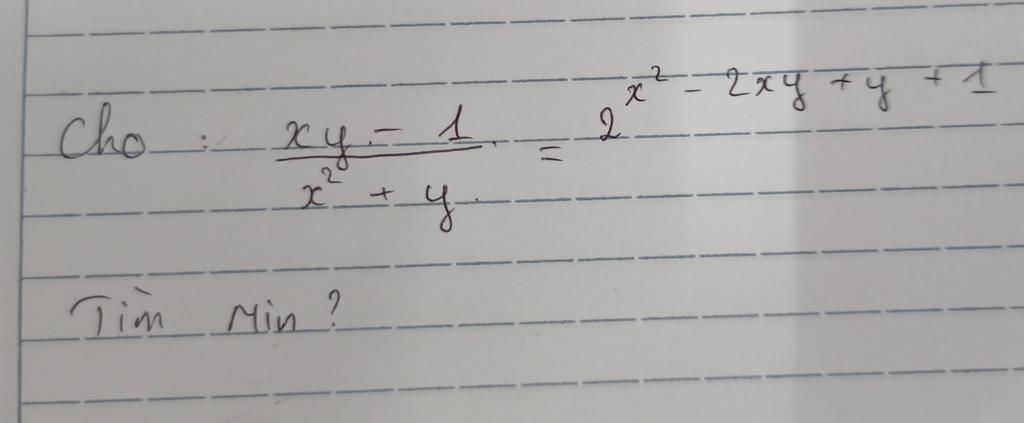 Cho : \frac{xy - 1}{x^2 + y} = 2^{x^2 - 2xy + y + 1}
Tìm Min ?